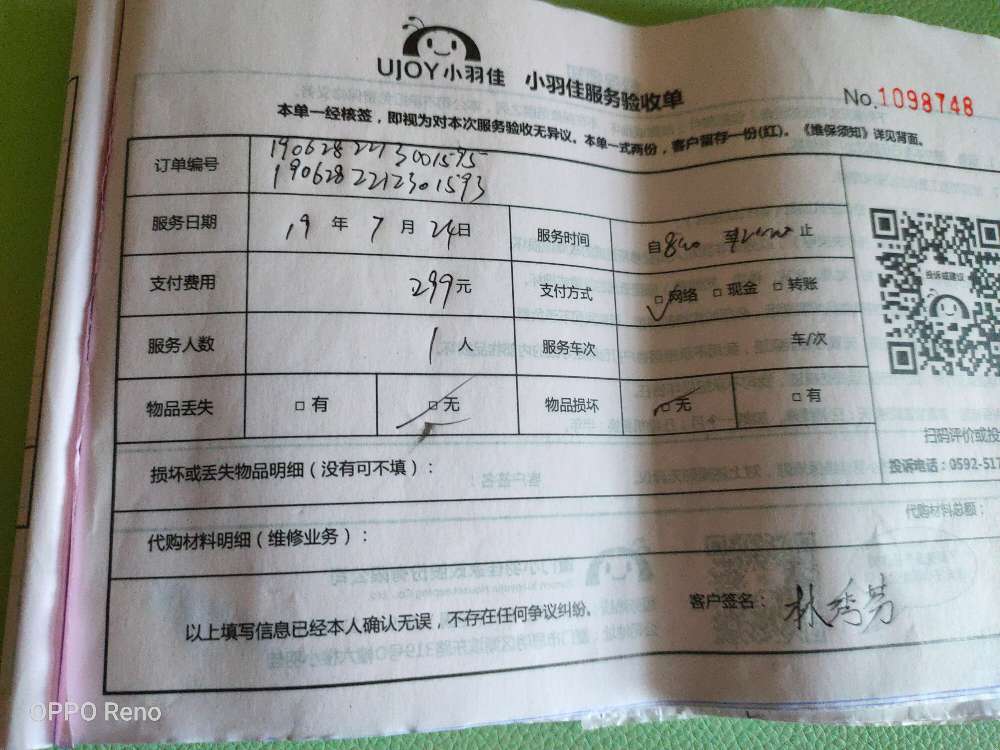 UJOY小羽佳 小羽佳服务验收单
No.1098748
本单一经核签，即视为对本次服务验收无异议。本单一式两份，客户留存一份(红)。《维保须知》详见背面。
订单编号 1906282213001595
1906282212301593
服务日期 19 年 7 月 24 日 服务时间 自 8:00 至 止
支付费用 299元 支付方式 □网络 □现金 □转账
服务人数 1 人 服务车次 车/次
物品丢失 □有 □无 物品损坏 □无 □有
投诉或建议
扫码评价或投
投诉电话：0592-517
损坏或丢失物品明细（没有可不填）：
代购材料总额：
代购材料明细（维修业务）：
以上填写信息已经本人确认无误，不存在任何争议纠纷。 客户签名：林秀芳
OPPO Reno